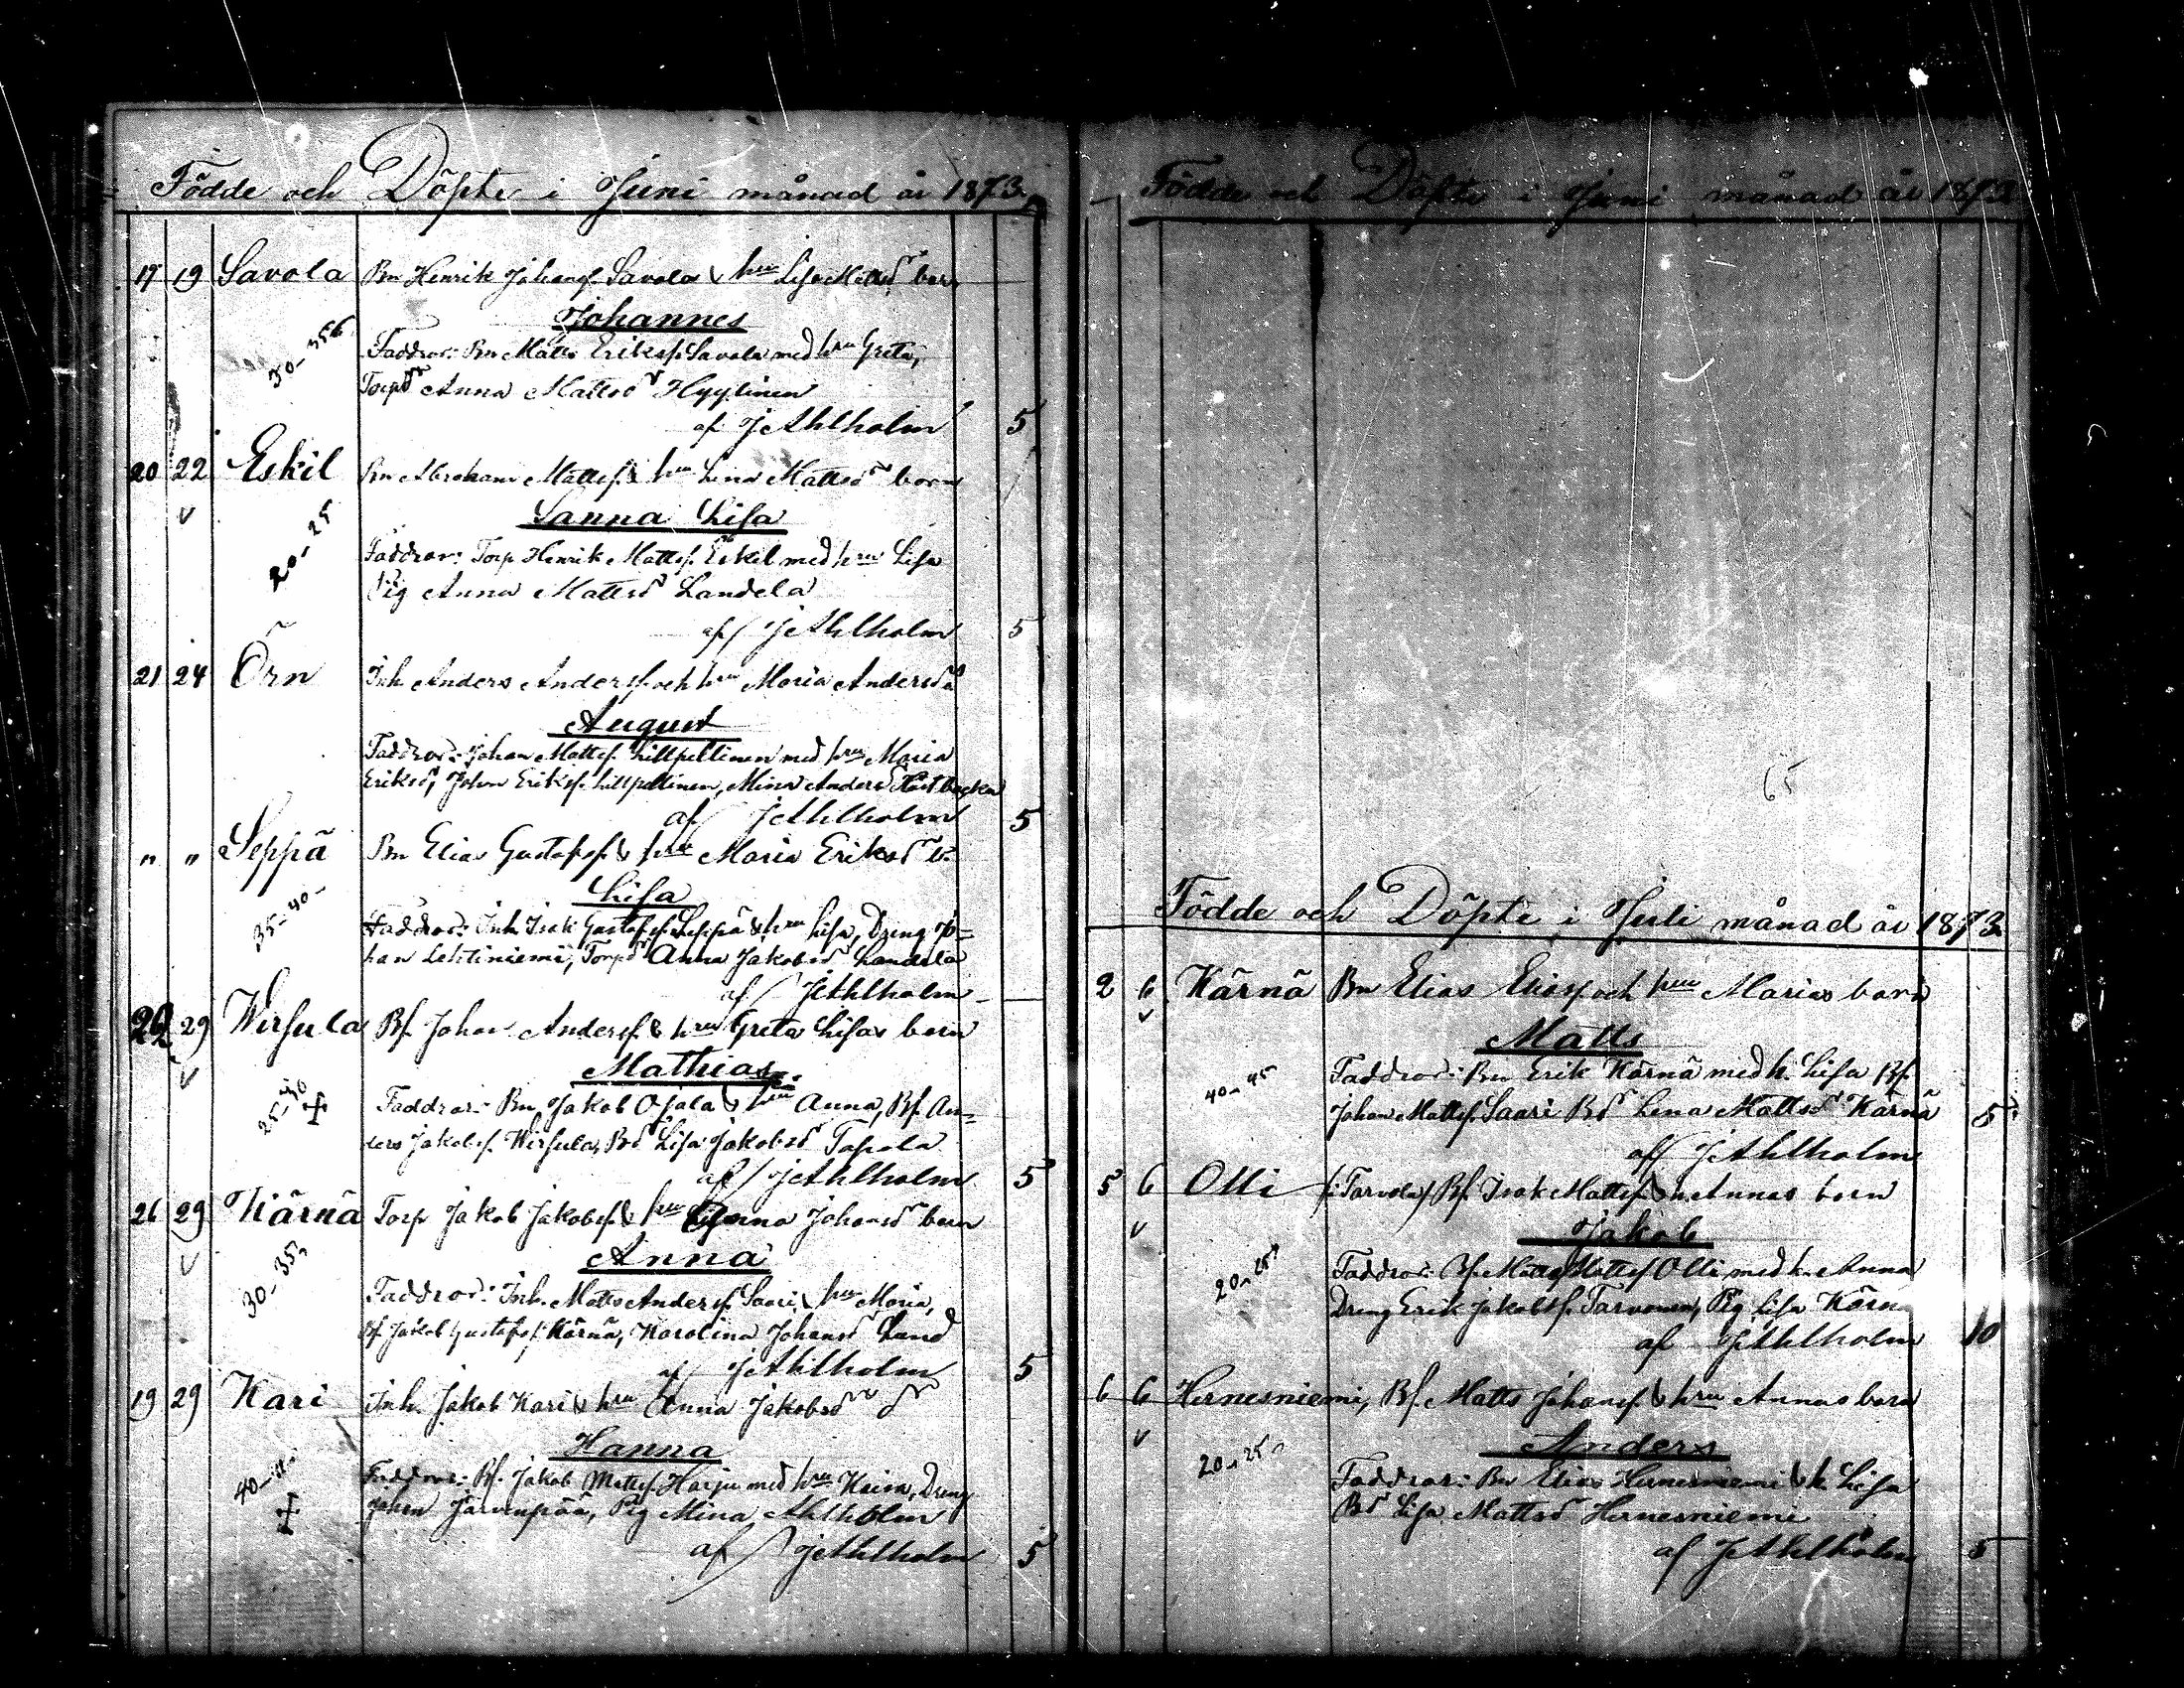 Födde och Döpte i Juni månad år 1873.
17 19 Savola Bn Henrik Johansf. Savola & hru Lisa Mattsdr barn
Johannes
30-35
Faddrar: Bn Matts Eriksf. Savola med hru Greta,
Torpdr Anna Mattsdr Hyytinen
af J Ahlholm 5
20 22 Eskil Bn Abraham Mattsf. & hru Lena Mattsdr barn
Sanna Lisa
20-25
Faddrar: Torp Henrik Mattsf. Eskil med hru Lisa
Pig Anna Mattsdr Landela
af J Ahlholm 5
21 24 Örn Inh Anders Andersf. och hru Maria Andersdr
August
Faddrar: Johan Mattsf. Lillpeltinen med hru Maria
Eriksdr, Johan Eriksf. Lillpeltinen, Mina Anders
af J Ahlholm 5
" " Seppä Bn Elias Gustafsf. & hru Maria Eriksdr b.
Lisa
35-40-
Faddrar: Inh Isak Gustafsf. Seppä & hru Lisa, Dreng Jo=
han Lehtiniemi, Torpdr Anna Jakobsdr Landela
af J Ahlholm
29 Wirsula Bf. Johan Andersf. & hru Greta Lisas barn
Mathias
25-30
Faddrar: Bn Jakob Ojala & hru Anna, Bf. An=
ders Jakobsf. Wirsula, Bdr Lisa Jakobsdr Tapola
af J Ahlholm 5
26 29 Kärnä Torp Jakob Jakobsf. & hru Anna Johansdr barn
Anna
30-35
Faddrar: Inh. Matts Andersf. Saari, & hru Maria,
Bf Jakob Gustafsf. Kärnä, Karolina Johansdr Lund
af J Ahlholm 5
19 29 Kari Inh. Jakob Kari & hru Anna Jakobsdr dr
Hanna
40-
Faddrar: Bf. Jakob Mattsf. Harju med hru Kaisa, Dreng
Johan Järvenpää, Pig Mina Ahlholm
af J Ahlholm 5
Födde och Döpte i Juni månad år 1873
65
Födde och Döpte i Juli månad år 1873
2 6 Kärnä Bn Elias Eliasf och hru Marias barn
Matts
40-45
Faddrar: Bn Erik Kärnä med h. Lisa Bf.
Johan Mattsf. Saari Bdr Lena Mattsdr Kärnä 5
af J Ahlholm
5 6 Olli (: Tarvola) Bf. Isak Mattsf. & h Annas barn
Jakob
20-25
Faddrar: Bf. Matts Mattsf Olli med h. Anna
Dreng Erik Jakobsf. Tarvonen, Pig Lisa Kärn
af J Ahlholm 10
6 6 Hernesniemi, Bf. Matts Johansf. & hru Annas barn
Anders
20-25
Faddrar: Bn Elias Hernesniemi & h. Lisa
Bdr Lisa Mattsdr Hernesniemi
af J Ahlholm 5